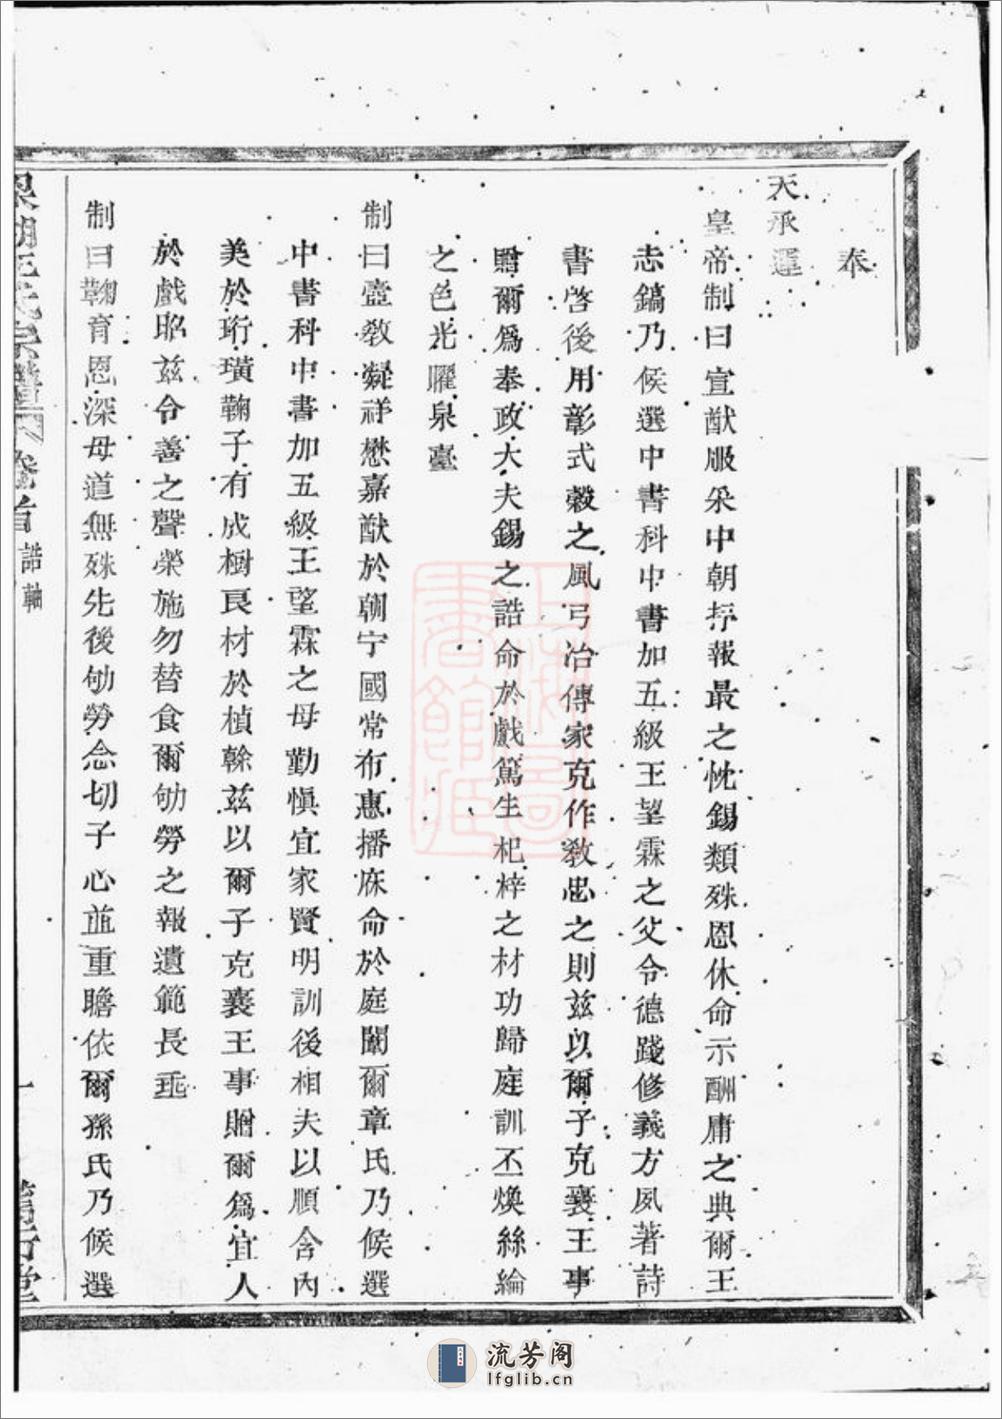 奉
天承運
皇帝制曰宣猷服采中朝抒報最之忱錫類殊恩休命示酬庸之典爾王
志鎬乃候選中書科中書加五級王望霖之父令德踐修義方夙著詩
書啓後用彰式穀之風弓冶傳家克作敎忠之則茲以爾子克襄王事
贈爾爲奉政大夫錫之誥命於戲篤生杞梓之材功歸庭訓丕煥絲綸
之色光曜泉臺
制曰壼敎凝祥懋嘉猷於朝宁國常布惠播庥命於庭闈爾章氏乃候選
中書科中書加五級王望霖之母勤愼宜家賢明訓後相夫以順含內
美於珩璜鞠子有成樹良材於楨榦茲以爾子克襄王事贈爾爲宜人
於戲昭茲令善之聲榮施勿替食爾劬勞之報遺範長垂
制曰鞠育恩深母道無殊先後劬勞念切子心並重瞻依爾孫氏乃候選
氏宗譜 卷首 誥軸 一
上海圖書館藏
流芳阁
lfglib.cn